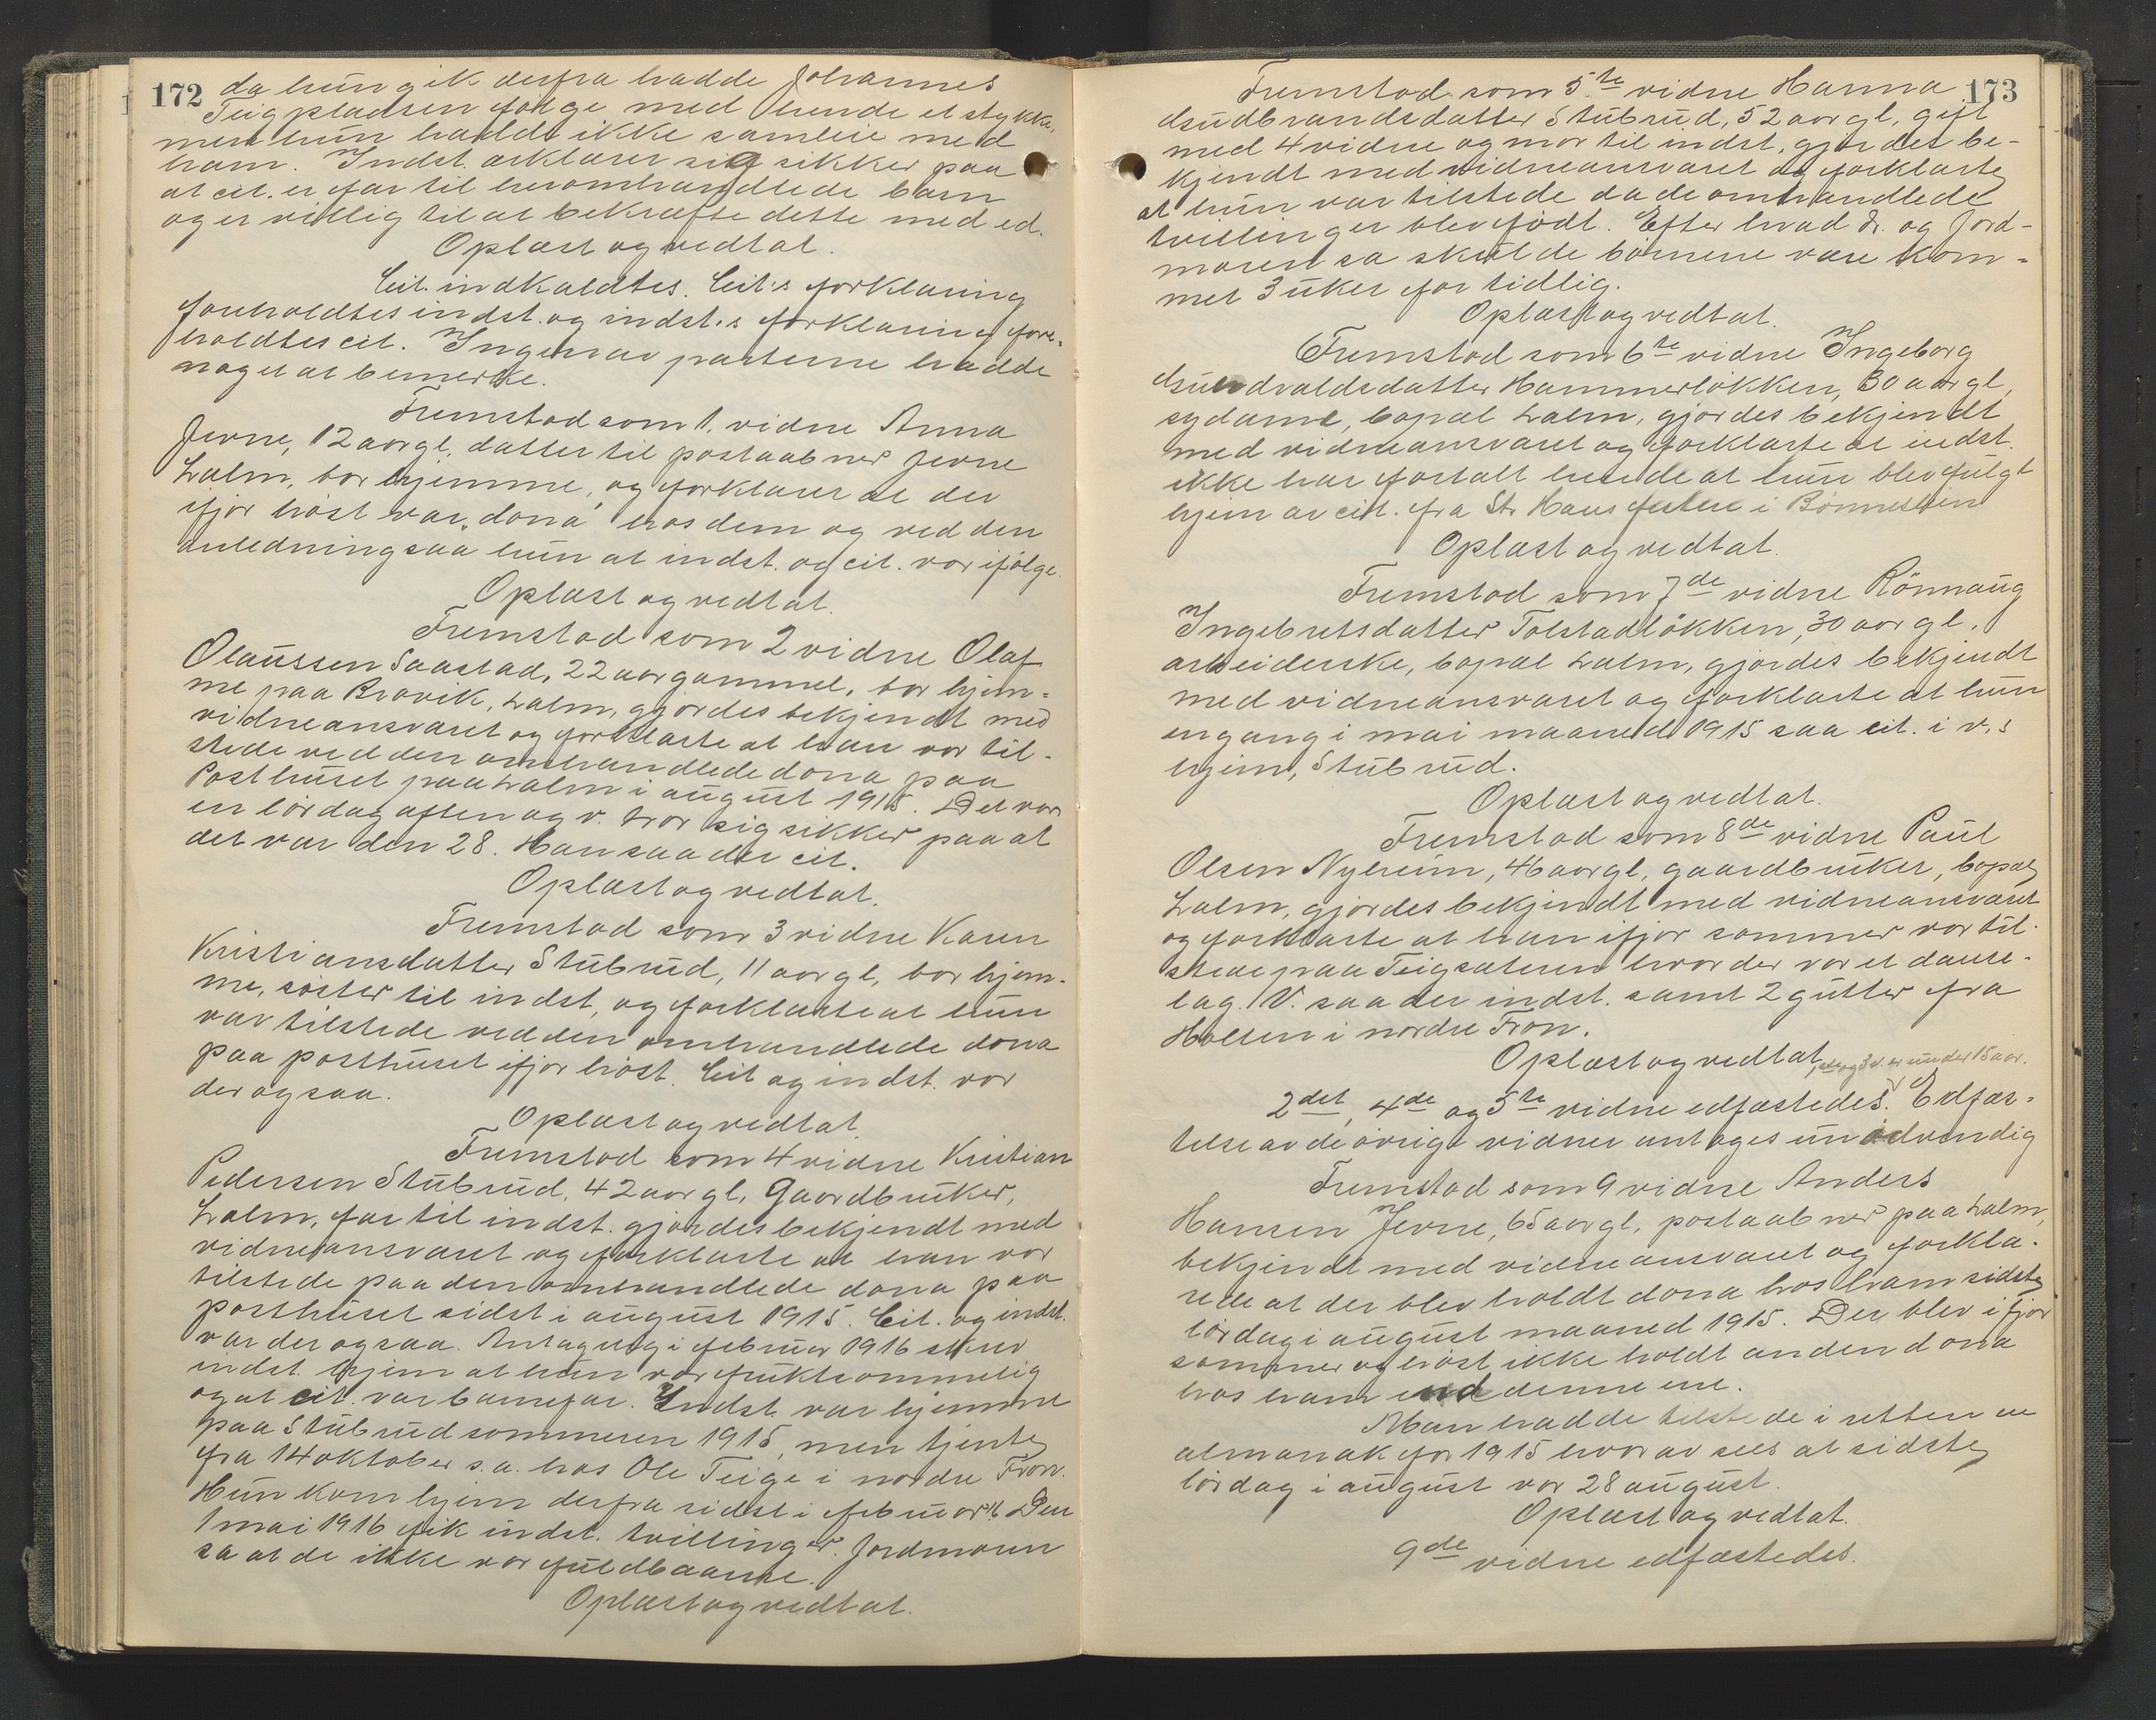 172
da hun gik derfra hadde Johannes
Teigpladsen følge med hende et stykke,
men hun hadde ikke samleie med
ham. Indst. erklærer sig sikker paa
at cit. er far til heromhandlede barn
og er villig til at bekræfte dette med ed.
Oplæst og vedtat.
Cit. indkaldtes. Cit.s forklaring
foreholdtes indst. og indst.s forklaring fore-
holdtes cit. Ingen av parterne hadde
noget at bemerke.
Fremstod som 1. vidne Anna
Jerne, 12 aar gl. datter til postaabner Jerne
Lalm, bor hjemme, og forklarer at der
ifjor høst var "dona" hos dem og ved den
anledning saa hun at indst. og cit. var ifølge.
Oplæst og vedtat.
Fremstod som 2 vidne Olaf
Olaussen Saastad, 22 aar gammel, bor hjem-
me paa Brovik, Lalm, gjordes bekjendt med
vidneansvaret og forklarte at han var til-
stede ved den omhandlede dona paa
Posthuset paa Lalm i august 1915. Det var
en lørdag aften og v. tror sig sikker paa at
det var den 28. Han saa der cit.
Oplæst og vedtat.
Fremstod som 3 vidne Karen
Kristiansdatter Stubrud, 11 aar gl, bor hjem-
me, søster til indst, og forklarte at hun
var tilstede ved den omhandlede dona
paa posthuset ifjor høst. Cit og indst. var
der ogsaa.
Oplæst og vedtat.
Fremstod som 4 vidne Kristian
Pedersen Stubrud, 42 aar gl, Gaardbruker,
Lalm, far til indst. gjordes bekjendt med
vidneansvaret og forklarte at han var
tilstede paa den omhandlede dona paa
posthuset sidst i august 1915. Cit. og indst.
var der ogsaa. Antagelig i februar 1916 skrev
indst. hjem at hun var fruktsommelig
og at cit. var barnefar. Indst. var hjemme
paa Stubrud sommeren 1915, men tjente
fra 14 oktober s.a. hos Ole Teige i nordre Fron.
Hun kom hjem derfra sidst i februar 16. Den
1 mai 1916 fik indst. tvillinger. Jordmoren
sa at de ikke var fuldbaarne.
Oplæst og vedtat.
173
Fremstod som 5te vidne Hanna
Gudbrandsdatter Stubrud, 52 aar gl, gift
med 4 vidne og mor til indst, gjordes be-
kjendt med vidneansvaret og forklarte
at hun var tilstede da de omhandlede
tvillinger blev født. Efter hvad dr. og Jord-
moren sa skulde børnene være kom-
met 3 uker for tidlig.
Oplæst og vedtat.
Fremstod som 6te vidne Ingeborg
Gundvaldsdatter Hammerløkken, 30 aar gl,
sydame, bopæl Lalm, gjordes bekjendt
med vidneansvaret og forklarte at indst.
ikke har fortalt hende at hun blev fulgt
hjem av cit. fra St. Hans festen i
Oplæst og vedtat.
Fremstod som 7de vidne Rønnaug
Ingebretsdatter Tolstadløkken, 30 aar gl.
arbeiderske, bopæl Lalm, gjordes bekjendt
med vidneansvaret og forklarte at hun
engang i mai maaned 1915 saa cit. i v.s
hjem, Stubrud.
Oplæst og vedtat.
Fremstod som 8de vidne Paul
Olsen Nyheim, 46 aar gl, gaardbruker, bopæl
Lalm, gjordes bekjendt med vidneansvaret
og forklarte at han ifjor sommer var til-
stede paa Teigsæteren hvor der var et danse-
lag. V. saa der indst. samt 2 gutter fra
Holten i nordre Fron.
Oplæst og vedtat, og 3 v. er under 15 aar.
2det, 4de og 5te vidne edfæstedes. Edfæs-
telse av de øvrige vidner antages unødvendig
Fremstod som 9 vidne Anders
Hansen Jerne, 65 aar gl, postaabner paa Lalm,
bekjendt med vidneansvaret og forkla-
rede at der blev holdt dona hos ham sidste
lørdag i august maaned 1915. Der blev i fjor
sommer og høst ikke holdt anden dona
hos ham end denne ene.
Man hadde tilstede i retten en
almanak for 1915 hvorav sees at sidste
lørdag i august var 28 august.
Oplæst og vedtat.
9de vidne edfæstedes.